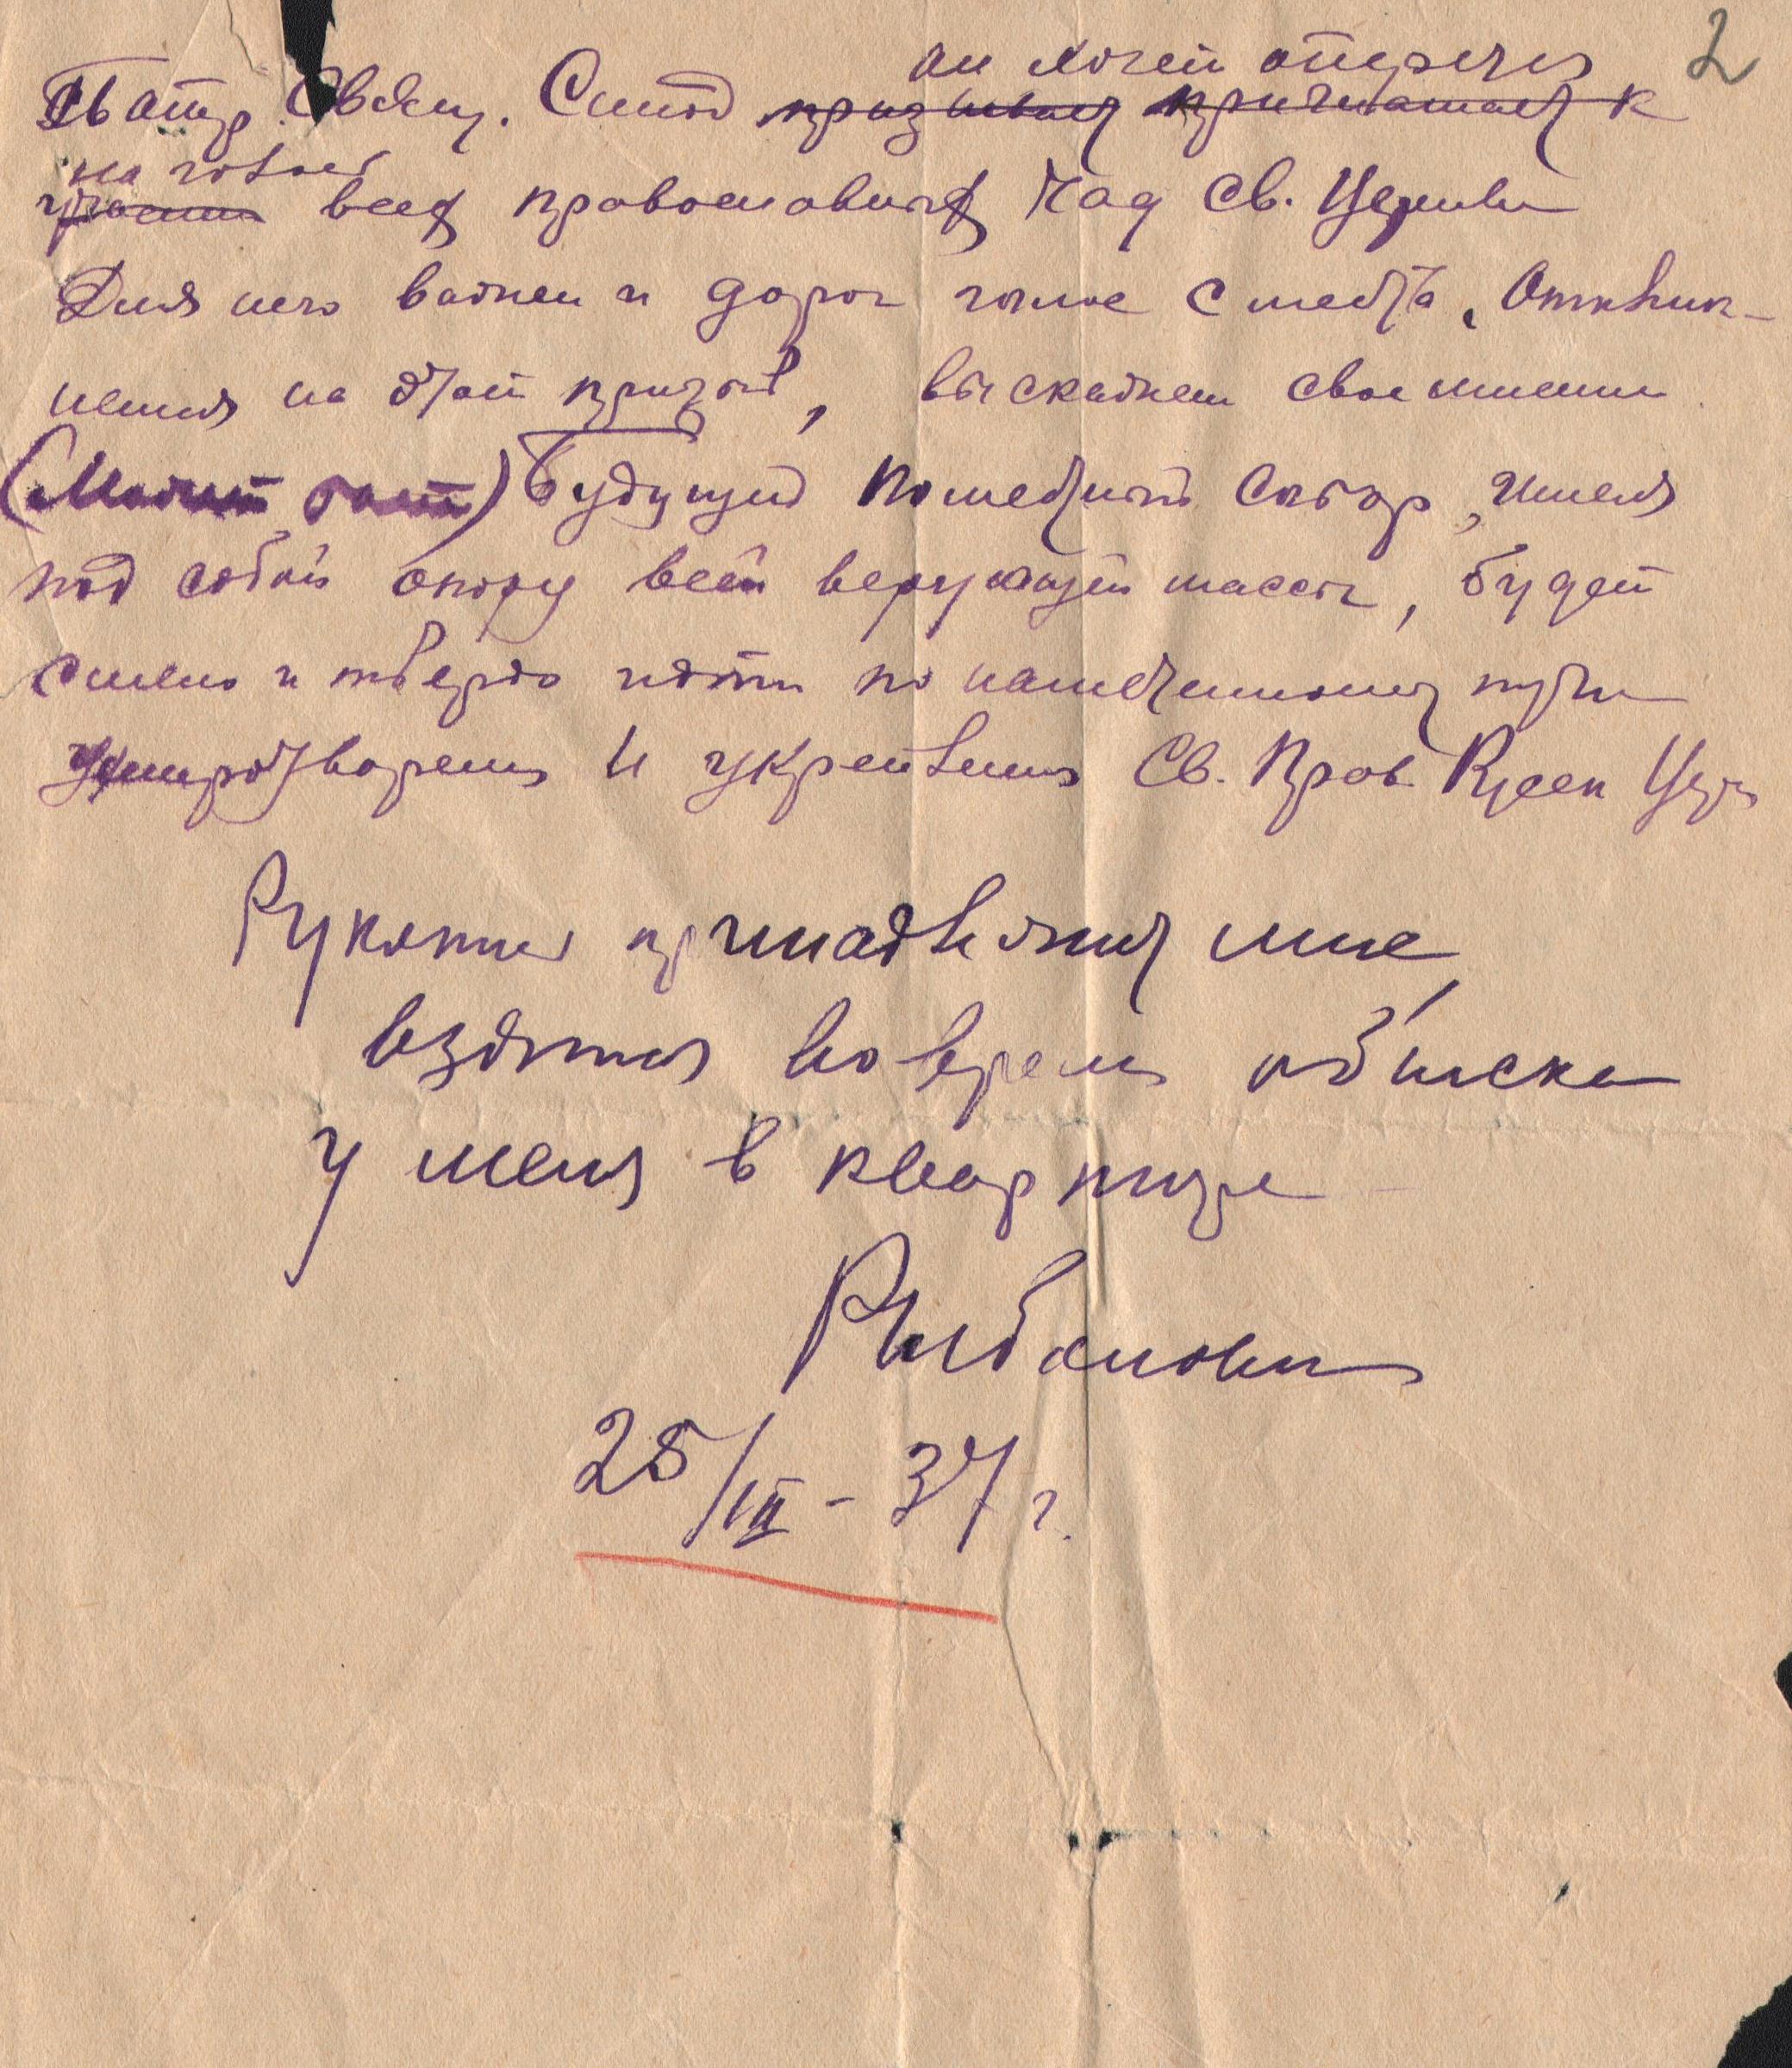 2
он хочет опереться
Патр. Свящ. Синод призывает приглашает к
на голос
участию всех православных чад Св. Церкви
Для него важен и дорог голос с места. Откликн-
немся на этот призыв, выскажем свое мнение
(Может быть) Будущий Поместный Собор, имея
под собой опору всей верующей массы, будет
смело и твердо идти по намеченному пути
умиротворения и укрепления Св. Прав. Русск Церк
Рукопись принадлежит мне,
взятая во время обыска
у меня в квартире
25/III - 37 г.